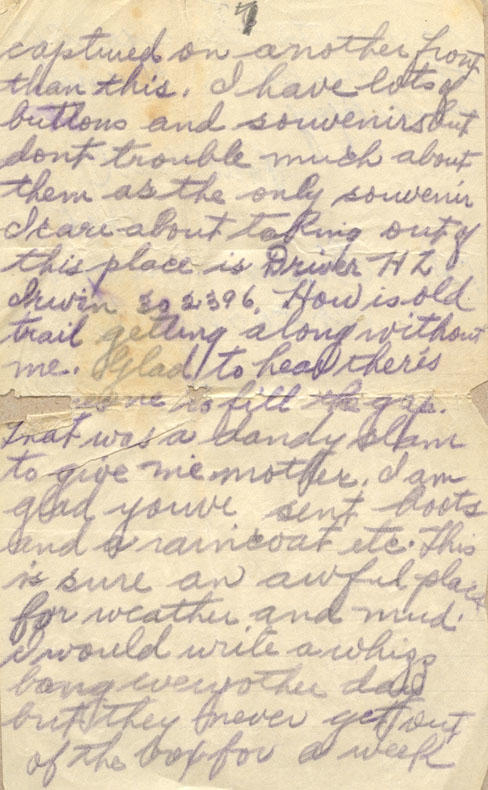 7
captured on another front
than this. I have lots of
buttons and souvenirs but
dont trouble much about
them as the only souvenir
I care about taking out of
this place is Driver H L
Irwin 302396. How is old
trail getting along without
me. Glad to hear there's
to fill the gap.
That was a dandy slam
to give me mother. I am
glad youve sent boots
and a raincoat etc. This
is sure an awful place
for weather and mud.
I would write a whizz
bang every other day
but they never get out
of the box for a week